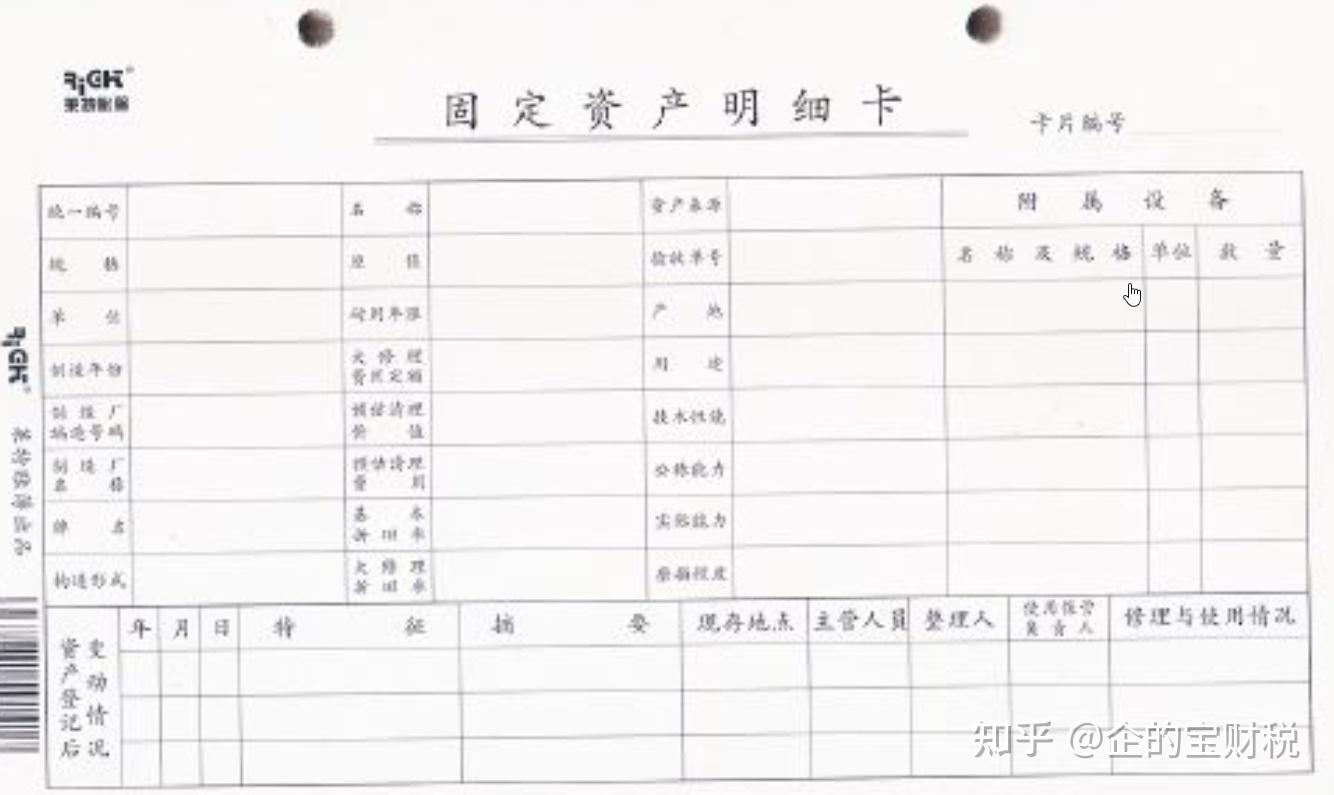 RiCH®
莱特账簿
固定资产明细卡
卡片编号
统一编号 名称 资产来源 附属设备
规格 原值 验收单号 名称及规格 单位 数量
单位 耐用年限 产地
制造年份 大修理费用定额 用途
制造厂编造号码 预估清理价值 技术性能
制造厂名称 预估清理费用 公称能力
牌名 基本折旧率 实际能力
构造形式 大修理折旧率 磨损程度
资产登记后变动情况 年 月 日 特征 摘要 现存地点 主管人员 整理人 使用保管负责人 修理与使用情况
RiCH®
知乎 @企的宝财税